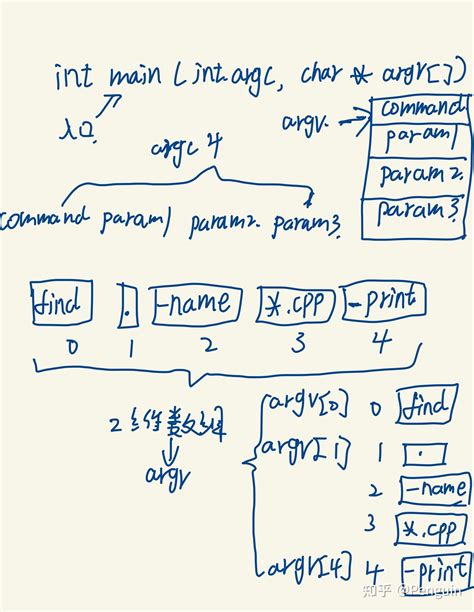 int main (int argc, char * argv[])
入口
argv
command
param1
param2
param3
argc 4
command param1 param2 param3
find . -name *.cpp -print
0 1 2 3 4
2维数组
argv
argv[0] 0 find
argv[1] 1 .
2 -name
3 *.cpp
argv[4] 4 -print
知乎 @Penguin